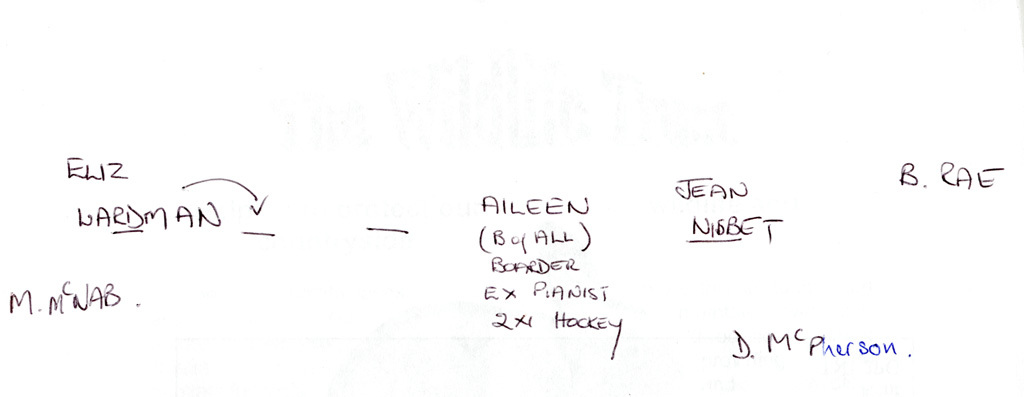 ELIZ
LARDMAN
M. McNAB.
AILEEN
(B of ALL)
BOARDER
EX PIANIST
2XI HOCKEY
JEAN
NISBET
B. RAE
D. McPherson.